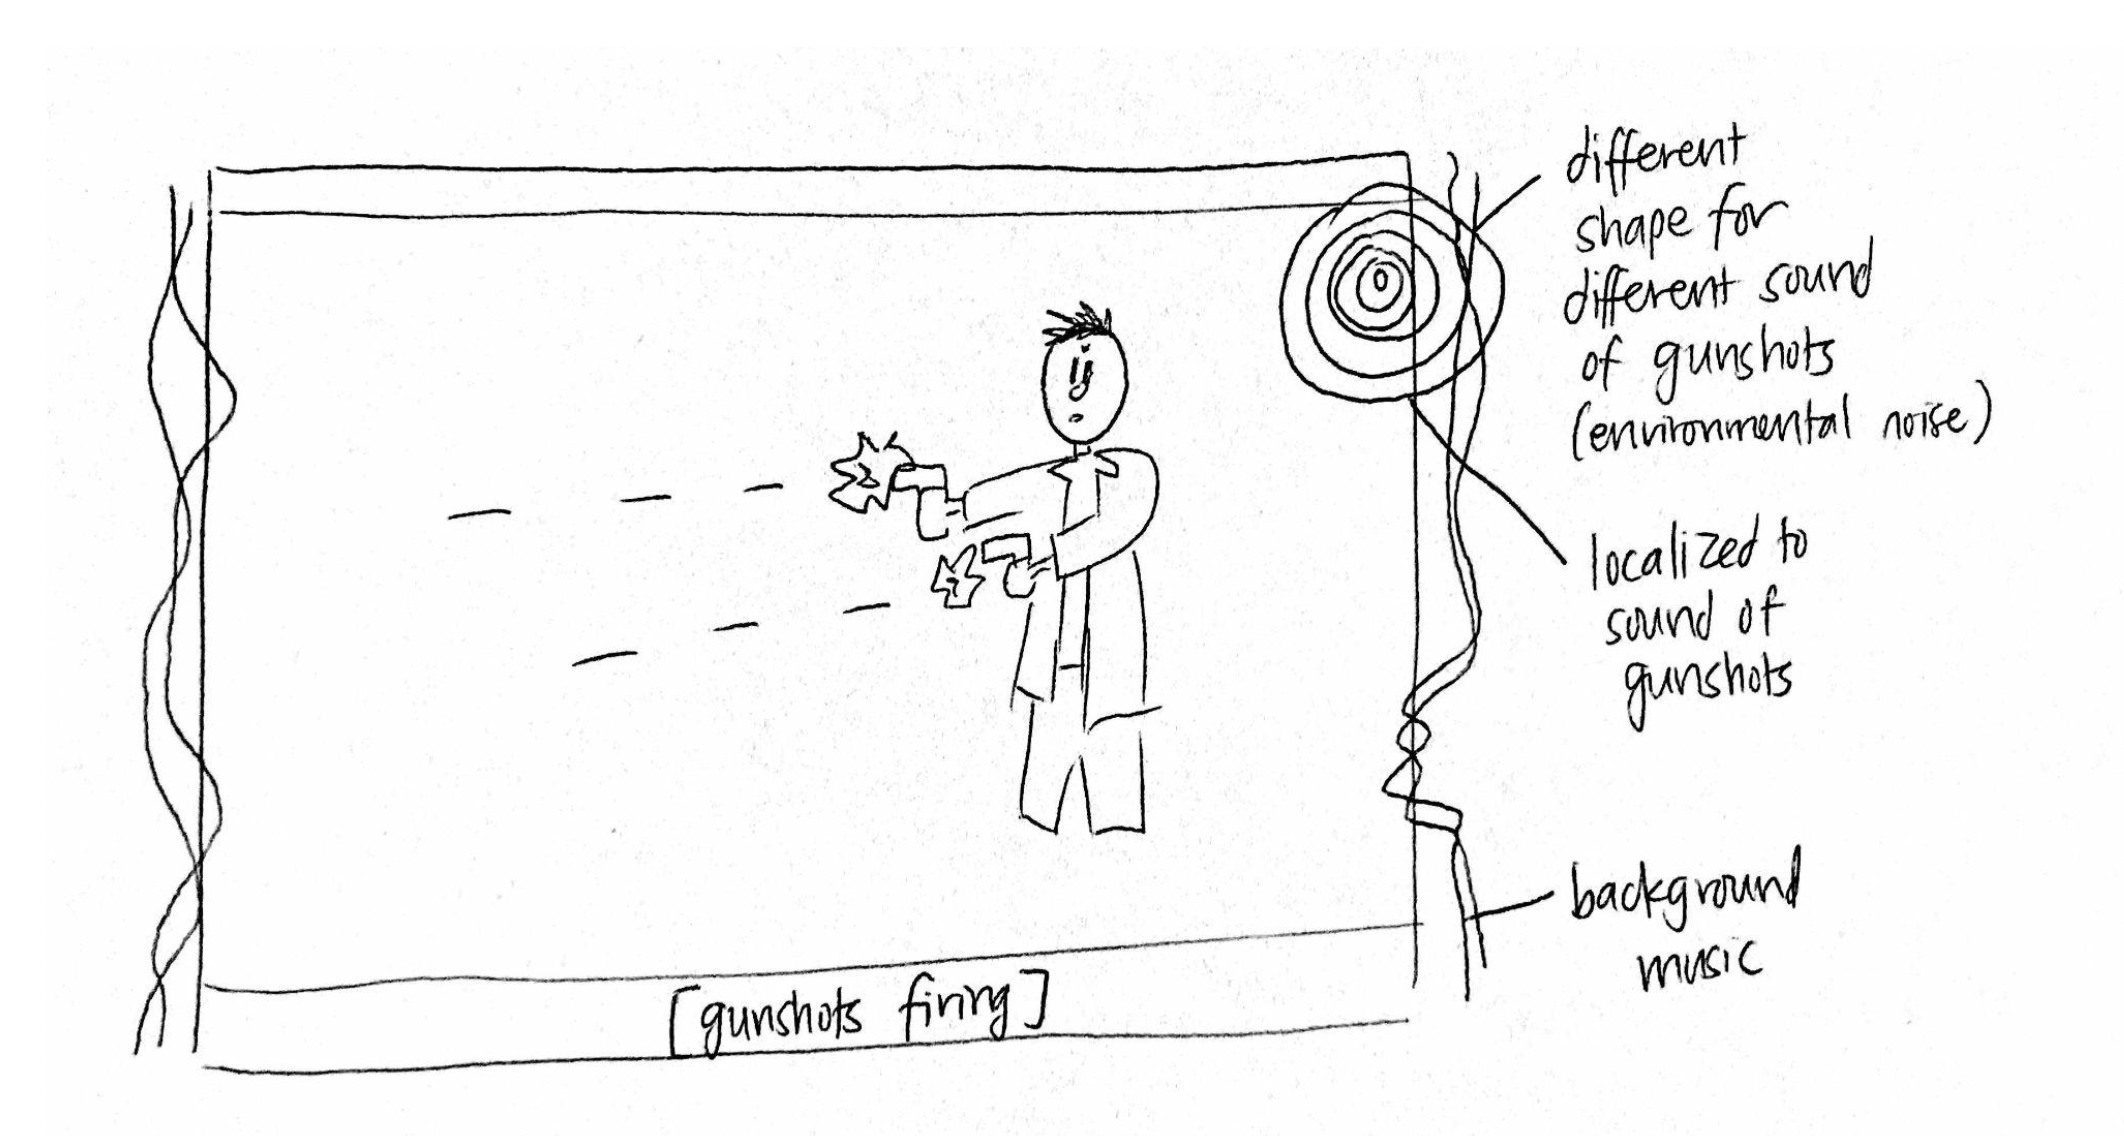 different
shape for
different sound
of gunshots
(environmental noise)
localized to
sound of
gunshots
background
music
[gunshots firing]